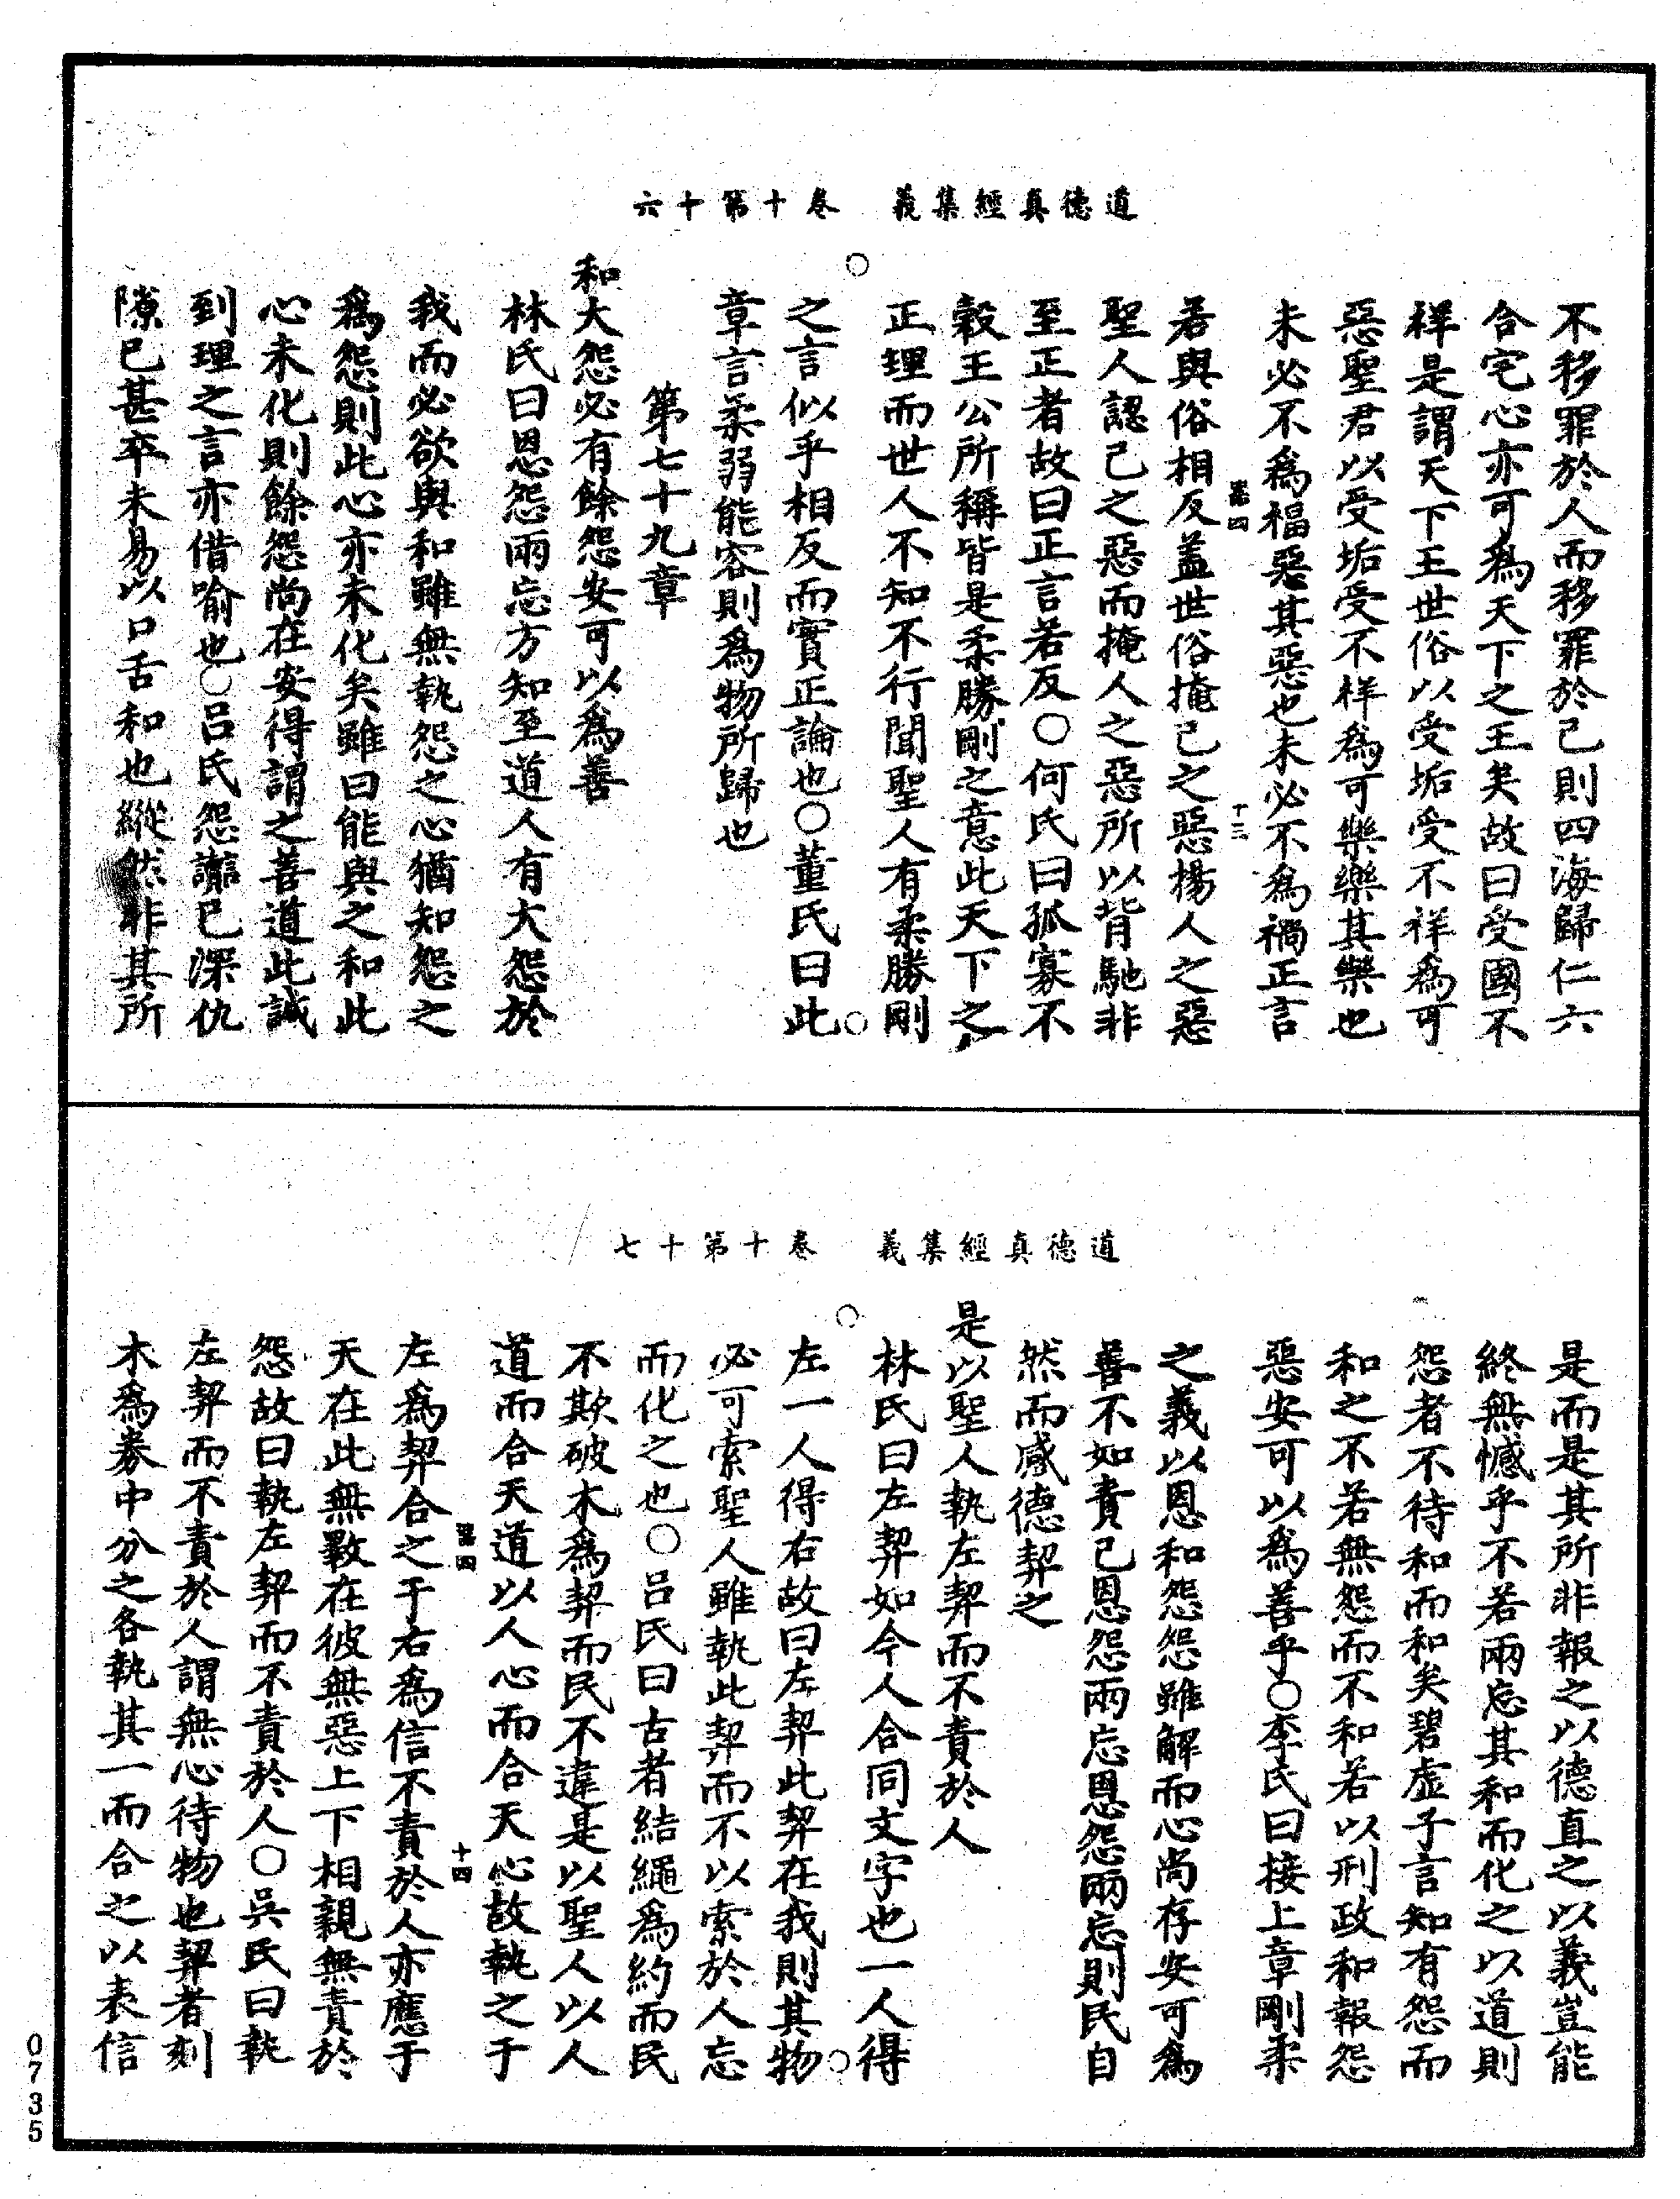 道德真經集義　卷十第十六
不移罪於人而移罪於己則四海歸仁六
合宅心亦可爲天下之王矣故曰受國不
祥是謂天下王世俗以受垢受不祥爲可
惡聖君以受垢受不祥爲可樂樂其樂也
未必不爲福惡其惡也未必不爲禍正言
若與俗相反蓋世俗掩己之惡揚人之惡
聖人認己之惡而掩人之惡所以背馳非
至正者故曰正言若反○何氏曰孤寡不
穀王公所稱皆是柔勝剛之意此天下之
正理而世人不知不行聞聖人有柔勝剛
之言似乎相反而實正論也○董氏曰此
章言柔弱能容則爲物所歸也
第七十九章
和大怨必有餘怨安可以爲善
林氏曰恩怨兩忘方知至道人有大怨於
我而必欲與和雖無執怨之心猶知怨之
爲怨則此心亦未化矣雖曰能與之和此
心未化則餘怨尚在安得謂之善道此誠
到理之言亦借喻也○呂氏怨讟已深仇
隙已甚卒未易以口舌和也縱然非其所
道德真經集義　卷十第十七
是而是其所非報之以德直之以義豈能
終無憾乎不若兩忘其和而化之以道則
怨者不待和而和矣碧虛子言知有怨而
和之不若無怨而不和若以刑政和報怨
惡安可以爲善乎○李氏曰接上章剛柔
之義以恩和怨怨雖解而心尚存安可爲
善不如責己恩怨兩忘恩怨兩忘則民自
然而感德契之
是以聖人執左契而不責於人
林氏曰左契如今人合同文字也一人得
左一人得右故曰左契此契在我則其物
必可索聖人雖執此契而不以索於人忘
而化之也○呂氏曰古者結繩爲約而民
不欺破木爲契而民不違是以聖人以人
道而合天道以人心而合天心故執之于
左爲契合之于右爲信不責於人亦應于
天在此無斁在彼無惡上下相親無責於
怨故曰執左契而不責於人○吳氏曰執
左契而不責於人謂無心待物也契者刻
木爲券中分之各執其一而合之以表信
0735